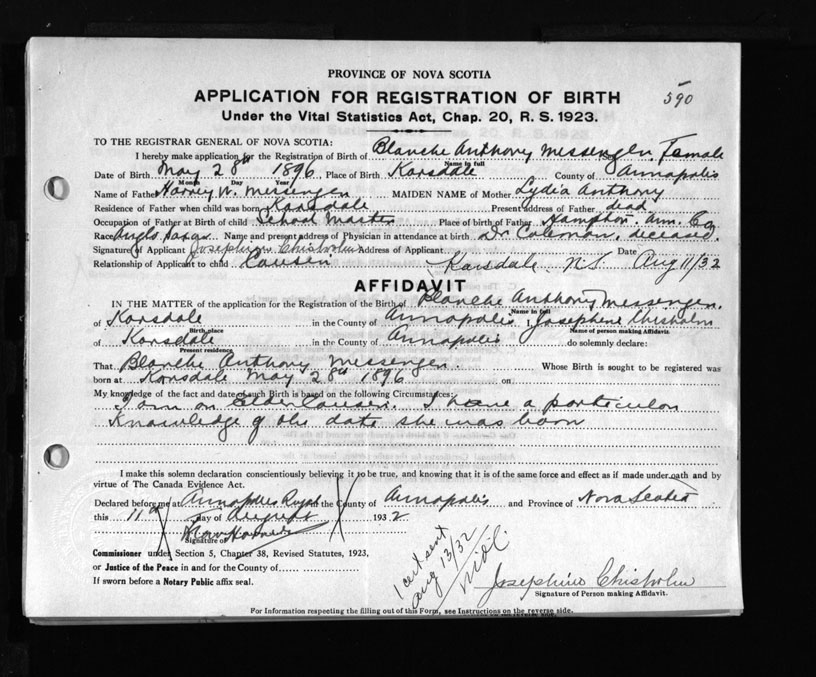 PROVINCE OF NOVA SCOTIA
APPLICATION FOR REGISTRATION OF BIRTH
590
Under the Vital Statistics Act, Chap. 20, R. S. 1923.
TO THE REGISTRAR GENERAL OF NOVA SCOTIA:
I hereby make application for the Registration of Birth of Blanche Anthony Messenger. Female
Name in full
Date of Birth May 28th 1896 Place of Birth Karsdale County of Annapolis
Month Day Year
Name of Father Harvey W. Messenger MAIDEN NAME of Mother Lydia Anthony
Residence of Father when child was born Karsdale Present address of Father dead
Occupation of Father at Birth of child School Master Place of birth of Father Hampton. Ann. Co
Race Anglo Name and present address of Physician in attendance at birth Dr Coleman. deceased.
Signature of Applicant Josephine Chisholm Address of Applicant Date
Relationship of Applicant to child Cousin Karsdale N.S. Aug 11/32
AFFIDAVIT
IN THE MATTER of the application for the Registration of the Birth of Blanche Anthony Messenger.
Name in full
of Karsdale in the County of Annapolis I, Josephine Chisholm
Birth place Name of person making Affidavit.
of Karsdale in the County of Annapolis do solemnly declare:
Present residence
That Blanche Anthony Messenger. Whose Birth is sought to be registered was
born at Karsdale May 28th 1896 on
My knowledge of the fact and date of such Birth is based on the following Circumstances:
I am an Elder Cousin. I have a particular
Knowledge of the date she was born
I make this solemn declaration conscientiously believing it to be true, and knowing that it is of the same force and effect as if made under oath and by
virtue of The Canada Evidence Act.
Declared before me at Annapolis Royal in the County of Annapolis and Province of Nova Scotia
this 11th day of August 1932
Signature of
Commissioner under Section 5, Chapter 38, Revised Statutes, 1923,
or Justice of the Peace in and for the County of
If sworn before a Notary Public affix seal.
1 cert sent
Aug 13/32
Josephine Chisholm
Signature of Person making Affidavit.
For Information respecting the filling out of this Form, see Instructions on the reverse side.